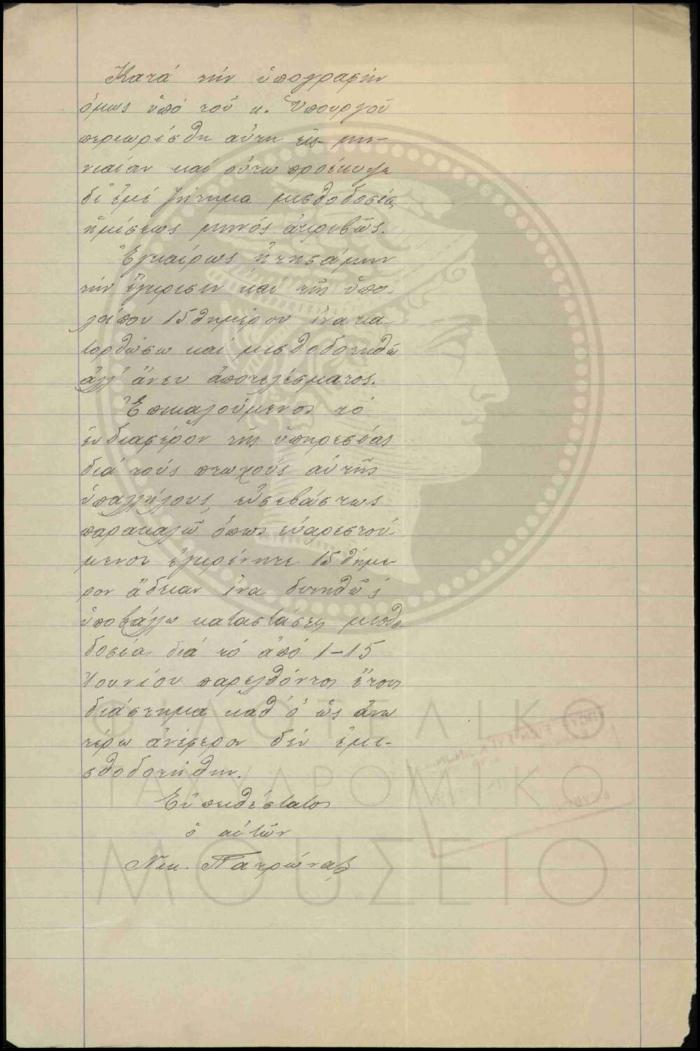 Κατά τήν ὑπογραφήν
ὅμως ὑπό τοῦ κ. Ὑπουργοῦ
περιωρίσθη αὕτη εἰς μη-
νιαίαν καί οὕτω προέκυψε
δι' ἐμέ ζήτημα μισθοδοσίας
ἡμίσεως μηνός ἀκριβῶς.
Ἐγκαίρως ᾐτησάμην
τήν ἔγκρισιν καί τῆς ὑπο-
λοίπου 15θημέρου ἵνα κα
τορθώσω καί μισθοδοτηθῶ
ἀλλ' ἄνευ ἀποτελέσματος.
Ἐπικαλούμενος τό
ἐνδιαφέρον τῆς ὑπηρεσίας
διά τούς πτωχούς αὐτῆς
ὑπαλλήλους, εὐσεβάστως
παρακαλῶ ὅπως εὐαρεστού
μενοι ἐγκρίνητε 15θήμε
ρον ἄδειαν ἵνα δυνηθῶ
ὑποβάλλω καταστάσεις μισθο
δοσίας διά τό ἀπό 1-15
Ἰουνίου παρελθόντος ἔτους
διάστημα καθ' ὅ ὡς ἄνω
τέρω ἀνέφερον δέν ἐμι-
σθοδοτήθην.
Εὐπειθέστατος
ὁ αἰτῶν
Νικ. Πατρώνας
ΦΙΛΟΤΕΛΙΚΟ
ΤΑΧΥΔΡΟΜΙΚΟ
ΜΟΥΣΕΙΟ